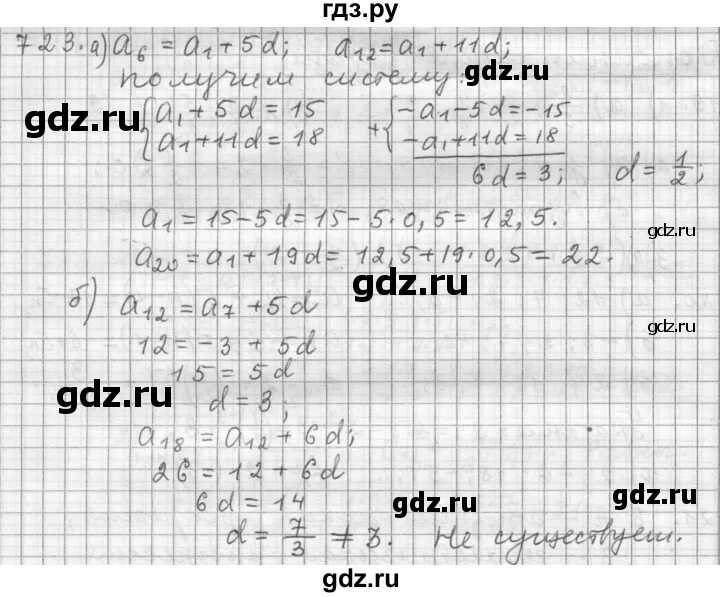 гдз.ру
723. а) a₆ = a₁ + 5d; a₁₂ = a₁ + 11d;
получим систему:
{a₁ + 5d = 15 + {-a₁ - 5d = -15
{a₁ + 11d = 18 -a₁ + 11d = 18
gdz.ru
6d = 3; d = 1/2;
a₁ = 15 - 5d = 15 - 5·0,5 = 12,5.
gdz.ru
a₂₀ = a₁ + 19d = 12,5 + 19·0,5 = 22.
gdz.ru
б) a₁₂ = a₇ + 5d
gdz.ru
12 = -3 + 5d
15 = 5d
gdz.ru
d = 3;
a₁₈ = a₁₂ + 6d;
26 = 12 + 6d
6d = 14
gdz.ru gdz.ru
d = 7/3 ≠ 3. Не существует.
gdz.ru
gdz.ru